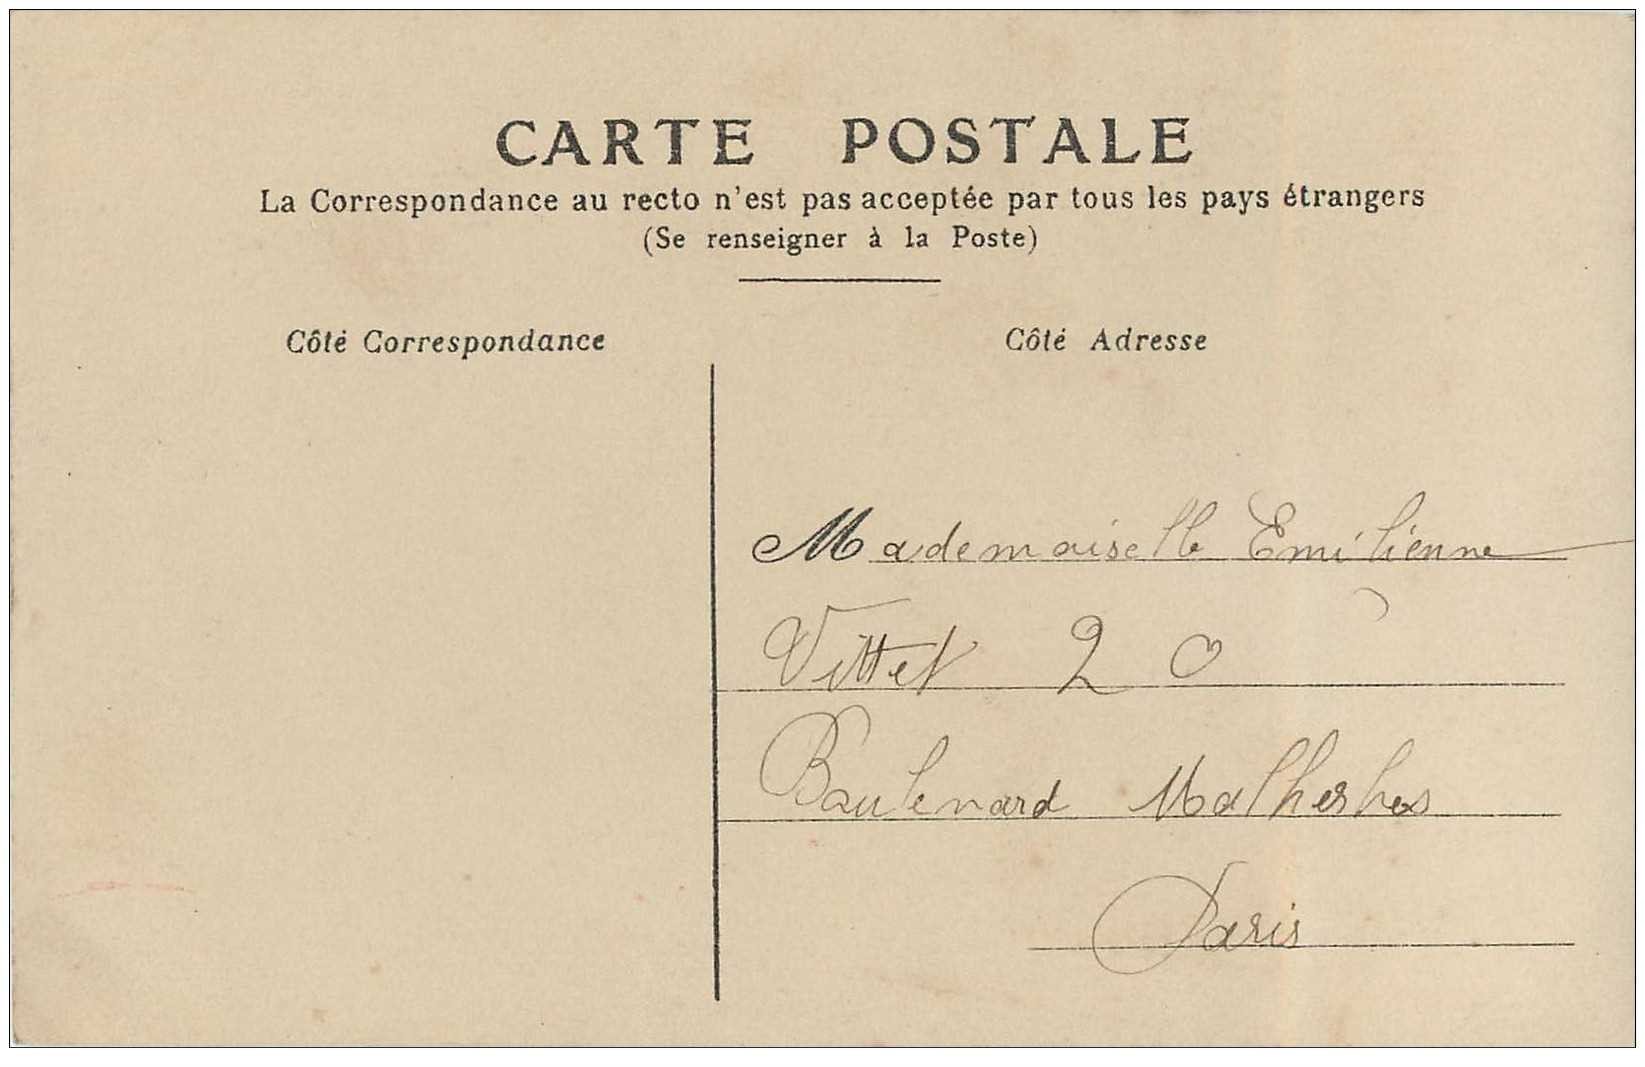 CARTE POSTALE
La Correspondance au recto n'est pas acceptée par tous les pays étrangers
(Se renseigner à la Poste)
Côté Correspondance
Côté Adresse
Mademaiselle Emilienne
Vittet 20
Boulevard Malherbes
Paris